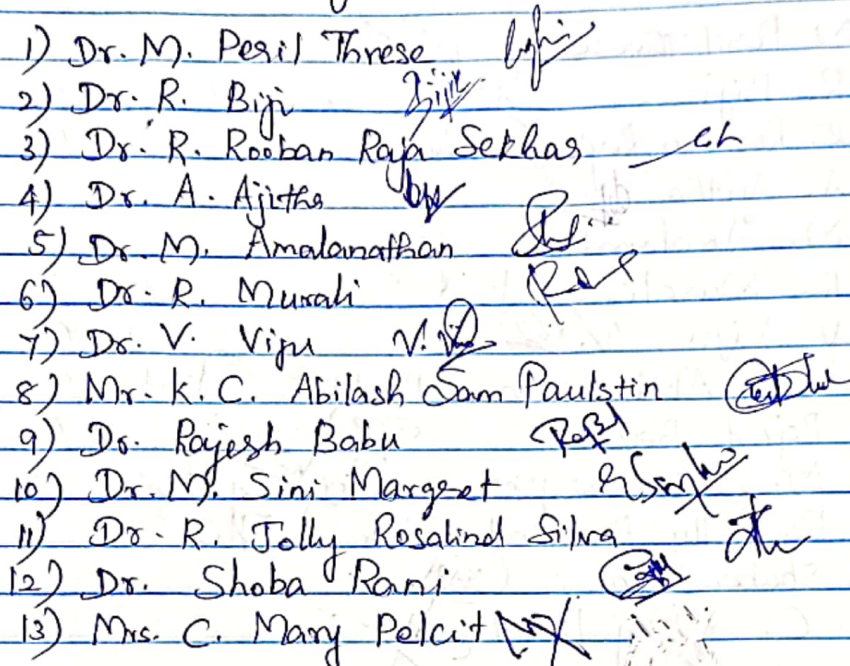 1) Dr. M. Peril Threse
2) Dr. R. Biji Biji
3) Dr. R. Rooban Raja Sekhar
4) Dr. A. Ajitha
5) Dr. M. Amalanathan
6) Dr. R. Murali
7) Dr. V. Viju
8) Mr. K. C. Abilash Sam Paulstin
9) Dr. Rajesh Babu
10) Dr. M. Sini Margret
11) Dr. R. Jolly Rosalind Silva
12) Dr. Shoba Rani
13) Mrs. C. Mary Pelcit